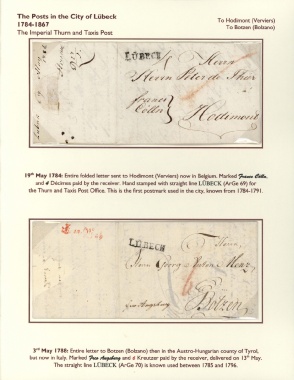 The Posts in the City of Lübeck
1784-1867
The Imperial Thurn and Taxis Post
To Hodimont (Verviers)
To Botzen (Bolzano)
LÜBECK
Herrn
Herrn Peter de
franco
Cölln
Hodimont
19th May 1784: Entire folded letter sent to Hodimont (Verviers) now in Belgium. Marked Franco Cölln,
and 4 Décimes paid by the receiver. Hand stamped with straight line LÜBECK (ArGe 69) for
the Thurn and Taxis Post Office. This is the first postmark used in the city, known from 1784-1791.
LÜBECK
Botzen
3rd May 1788: Entire letter to Botzen (Bolzano) then in the Austro-Hungarian county of Tyrol,
but now in Italy. Marked Fco Augsburg and 6 Kreutzer paid by the receiver, delivered on 13th May.
The straight line LÜBECK (ArGe 70) is known used between 1785 and 1796.